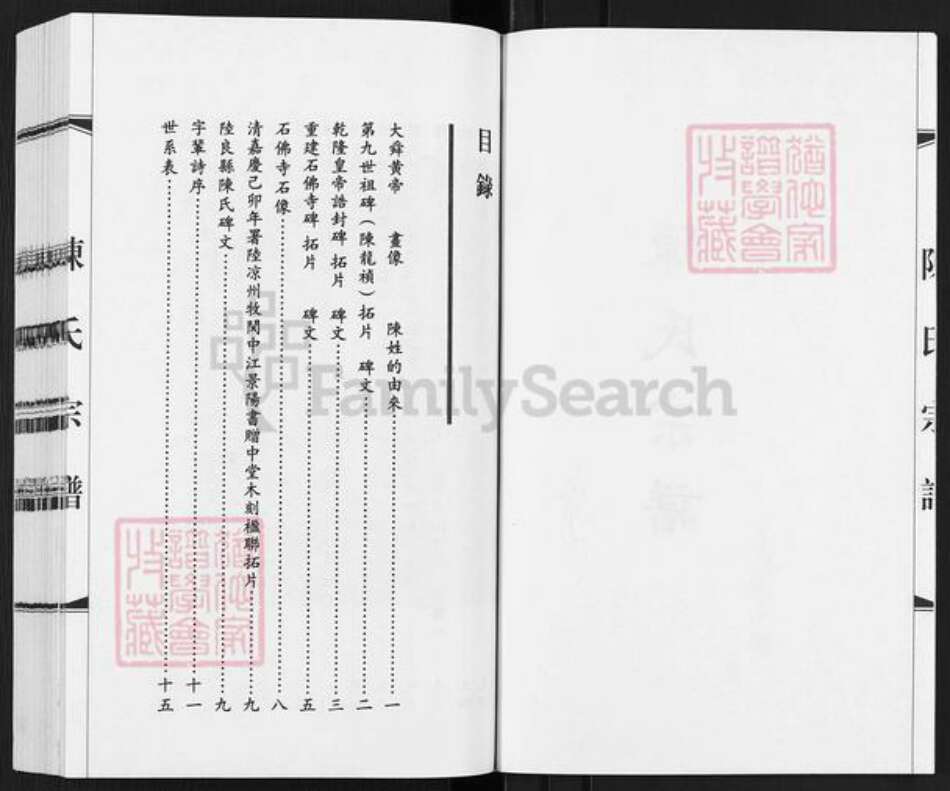 目錄
大舜黃帝 畫像 陳姓的由來……一
第九世祖碑（陳龍禎）拓片 碑文……二
乾隆皇帝誥封碑 拓片 碑文……三
重建石佛寺碑 拓片 碑文……五
石佛寺石像……八
清嘉慶己卯年署陸凉州牧関中江景陽書贈中堂木刻楹聯拓片……九
陸良縣陳氏碑文……九
字輩詩序……十一
世系表……十五
陳氏宗譜
FamilySearch